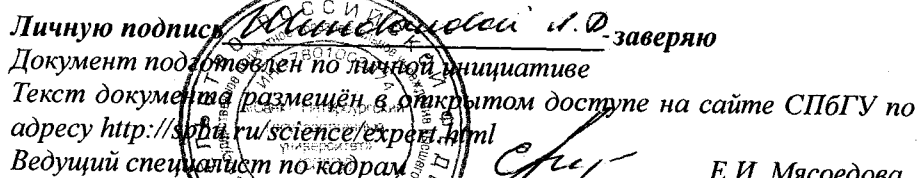 Личную подпись А.Ф. заверяю
Документ подготовлен по личной инициативе
Текст документа размещён в открытом доступе на сайте СПбГУ по
адресу http://spbu.ru/science/expert.html
Ведущий специалист по кадрам Е.И. Мясоедова